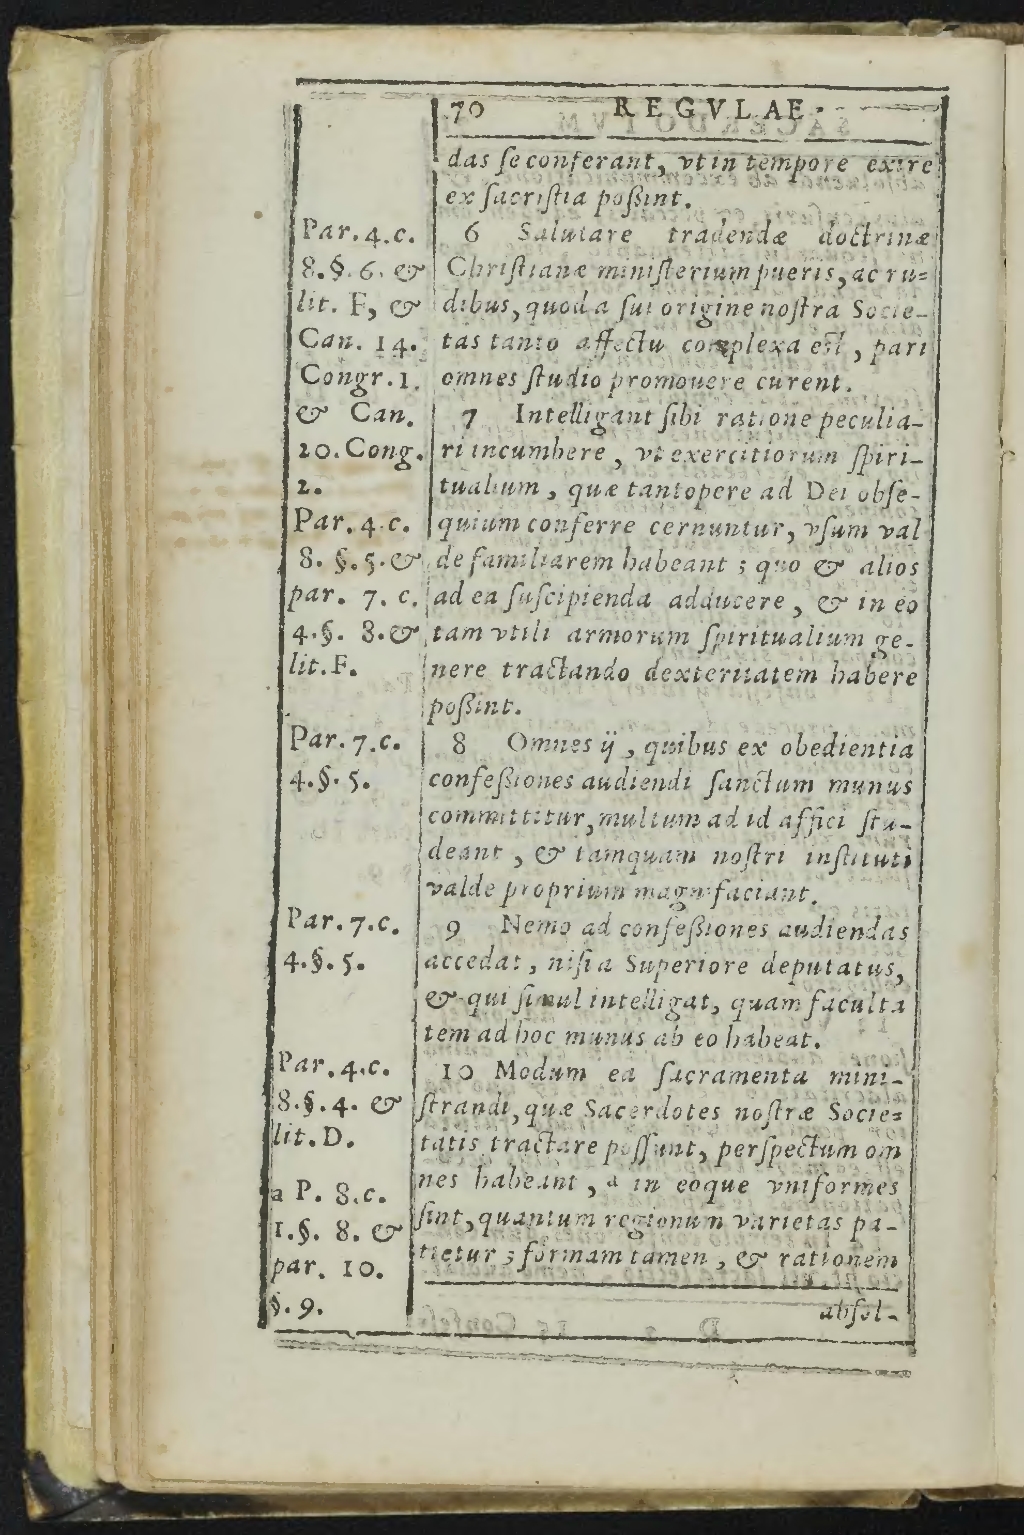 70 REGVLAE.
das se conferant, vt in tempore exire
ex sacristia possint.
Par. 4. c.
8. §. 6. &
lit. F, &
Can. 14.
Congr. 1.
& Can.
20. Cong.
2.
6 Salutare tradendæ doctrinæ
Christianæ ministerium pueris, ac ru=
dibus, quod a sui origine nostra Socie-
tas tanto affectu complexa est, pari
omnes studio promouere curent.
Par. 4. c.
8. §. 5. &
par. 7. c.
4. §. 8. &
lit. F.
7 Intelligant sibi ratione peculia-
ri incumbere, vt exercitiorum spiri-
tualium, quæ tantopere ad Dei obse-
quium conferre cernuntur, vsum val
de familiarem habeant; quo & alios
ad ea suscipienda adducere, & in eo
tam vtili armorum spiritualium ge-
nere tractando dexteritatem habere
possint.
Par. 7. c.
4. §. 5.
8 Omnes ij, quibus ex obedientia
confessiones audiendi sanctum munus
committitur, multum ad id affici stu-
deant, & tamquam nostri instituti
valde proprium magnifaciant.
Par. 7. c.
4. §. 5.
9 Nemo ad confessiones audiendas
accedat, nisi a Superiore deputatus,
& qui simul intelligat, quam faculta
tem ad hoc munus ab eo habeat.
Par. 4. c.
8. §. 4. &
lit. D.
a P. 8. c.
1. §. 8. &
par. 10.
§. 9.
10 Modum ea sacramenta mini-
strandi, quæ Sacerdotes nostræ Socie=
tatis tractare possunt, perspectum om
nes habeant, a in eoque vniformes
sint, quantum regionum varietas pa-
tietur; formam tamen, & rationem
absol-